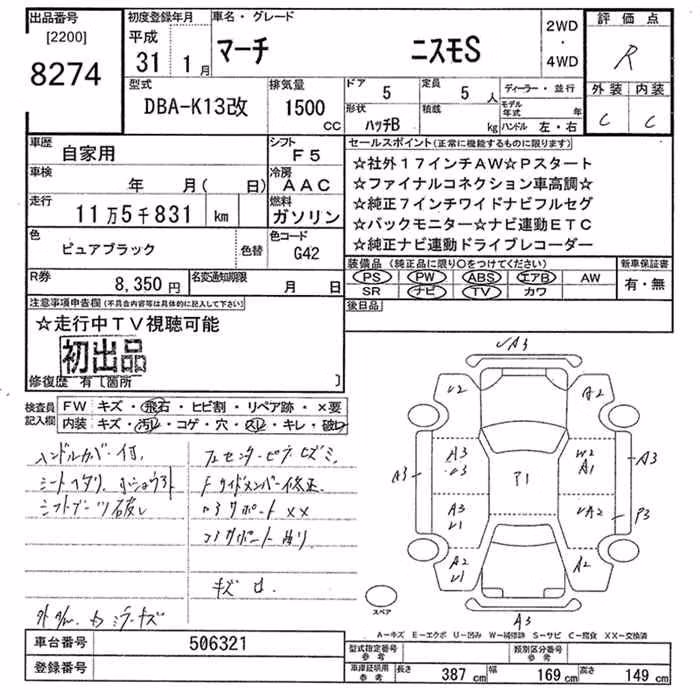 出品番号 初度登録年月 車名・グレード 評価点
[2200] 平成 2WD
8274 31 1月 マーチ ニスモS ・ R
4WD
型式 排気量 ドア 5 定員 5人 ディーラー・並行 外装 内装
DBA-K13改 1500 cc 形状 ハッチB 積載 kg モデル年式 年 C C
ハンドル 左・右
車歴 自家用 シフト F5 セールスポイント(正常に機能するものに限ります)
車検 年 月( 日) 冷房 AAC ☆社外17インチAW☆Pスタート
☆ファイナルコネクション車高調☆
走行 11万5千831 km 燃料 ガソリン ☆純正7インチワイドナビフルセグ
☆バックモニター☆ナビ連動ETC
色 ピュアブラック 色替 色コード G42 ☆純正ナビ連動ドライブレコーダー
装備品(純正品に限り○をつけてください) 新車保証書
PS PW ABS エアB AW 有・無
R券 8,350円 名変通知期限 月 日 SR ナビ TV カワ
注意事項申告欄(不具合内容等は具体的に記入して下さい) 後日品
☆走行中TV視聴可能
初出品
修復歴 有〔箇所 〕
検査員記入欄 FW キズ・飛石・ヒビ割・リペア跡・×要
内装 キズ・汚レ・コゲ・穴・スレ・キレ・破レ
ハンドルカバー付
シフトブーツ破レ
Fサイドメンバー修正
コアサポートXX
キズ
ミラーキズ
√A3
A2
A3
W2
A1
A3
P1
A3
A3
P3
A2
A2
A3
スペア
A-キズ E-エクボ U-凹み W-補修跡 S-サビ C-腐食 XX-交換済
車台番号 506321 型式指定番号 参考 類別区分番号 参考
登録番号 車庫証明用 参考 長さ 387 cm 幅 169 cm 高さ 149 cm